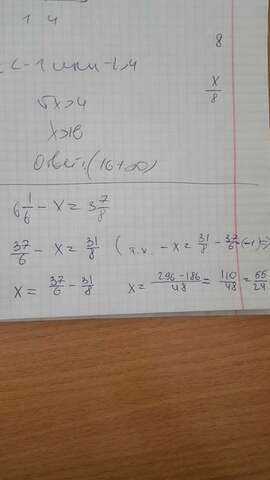 1 4
8
< -1 или 4
√x>4
x/8
x>16
Ответ: (16+∞)
6 1/6 - x = 3 7/8
37/6 - x = 31/8 (т.к. - x = 31/8 - 37/6 (-1) =>
x = 37/6 - 31/8 x = 296-186/48 = 110/48 = 55/24